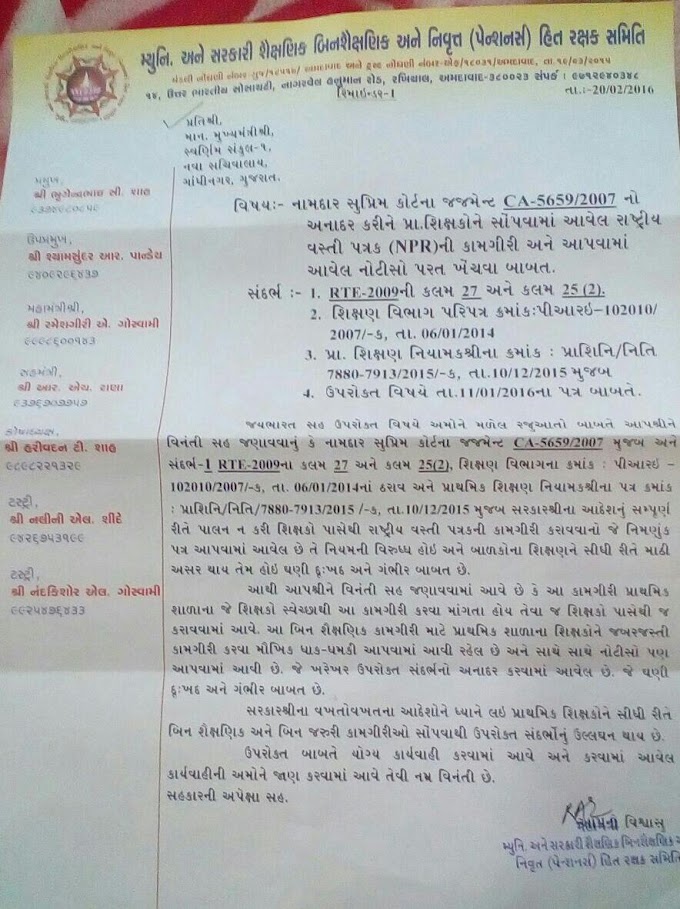 મ્યુનિ. અને સરકારી શૈક્ષણિક બિનશૈક્ષણિક અને નિવૃત્ત (પેન્શનર્સ) હિત રક્ષક સમિતિ
૧૪, ઉત્તર ભારતીય સોસાયટી, નાગરવેલ હનુમાન રોડ, રખિયાલ, અમદાવાદ-૩૮૦૦૨૩ સંપર્ક : ૯૭૧૨૯૪૦૩૪૮
રિમાઇન્ડર-1
તા.:-20/02/2016
પ્રતિશ્રી,
માન. મુખ્યમંત્રીશ્રી,
સ્વર્ણિમ સંકુલ-૧,
નવા સચિવાલય,
ગાંધીનગર, ગુજરાત.
વિષય:- નામદાર સુપ્રિમ કોર્ટના જજમેન્ટ CA-5659/2007 નો
અનાદર કરીને પ્રા.શિક્ષકોને સોંપવામાં આવેલ રાષ્ટ્રીય
વસ્તી પત્રક (NPR)ની કામગીરી અને આપવામાં
આવેલ નોટીસો પરત ખેંચવા બાબત.
સંદર્ભ :- 1. RTE-2009ની કલમ 27 અને કલમ 25 (2).
2. શિક્ષણ વિભાગ પરિપત્ર ક્રમાંક:પીઆરઇ-102010/
2007/-ક, તા. 06/01/2014
3. પ્રા. શિક્ષણ નિયામકશ્રીના ક્રમાંક : પ્રાશિનિ/નિતિ
7880-7913/2015/-ક, તા.10/12/2015 મુજબ
4. ઉપરોકત વિષયે તા.11/01/2016ના પત્ર બાબતે.
પ્રમુખ,
શ્રી ભુગેન્દ્રભાઇ સી. શાહ
ઉપપ્રમુખ,
શ્રી શ્યામસુંદર આર. પાન્ડેય
૯૪૦૯૨૯૬૪૩૭
મહામંત્રીશ્રી,
શ્રી રમેશગીરી એ. ગોસ્વામી
૯૯૯૮૬૦૦૧૪૩
સહમંત્રી,
શ્રી આર. એચ. રાણા
કોષાધ્યક્ષ,
શ્રી હરીવદન ટી. શાહ
૯૮૯૮૨૨૧૩૨૯
ટ્રસ્ટી,
શ્રી નલીની એલ. શીંદે
૯૪૨૬૭૫૩૧૯૯
ટ્રસ્ટી,
શ્રી નંદકિશોર એલ. ગોસ્વામી
૯૯૨૫૪૭૬૪૩૩
જયભારત સહ ઉપરોકત વિષયે અમોને મળેલ રજુઆતો બાબતે આપશ્રીને
વિનંતી સહ જણાવવાનું કે નામદાર સુપ્રિમ કોર્ટના જજમેન્ટ CA-5659/2007 મુજબ અને
સંદર્ભ-1 RTE-2009ના કલમ 27 અને કલમ 25(2), શિક્ષણ વિભાગના ક્રમાંક : પીઆરઇ -
102010/2007/-ક, તા. 06/01/2014નાં ઠરાવ અને પ્રાથમિક શિક્ષણ નિયામકશ્રીના પત્ર ક્રમાંક
: પ્રાશિનિ/નિતિ/7880-7913/2015 /-ક, તા.10/12/2015 મુજબ સરકારશ્રીના આદેશનું સમ્પૂર્ણ
રીતે પાલન ન કરી શિક્ષકો પાસેથી રાષ્ટ્રીય વસ્તી પત્રકની કામગીરી કરાવવાનો જે નિમણુંક
પત્ર આપવામાં આવેલ છે તે નિયમની વિરુધ્ધ હોઇ અને બાળકોના શિક્ષણને સીધી રીતે માઠી
અસર થાય તેમ હોઇ ઘણી દુઃખદ અને ગંભીર બાબત છે.
આથી આપશ્રીને વિનંતી સહ જણાવવામાં આવે છે કે આ કામગીરી પ્રાથમિક
શાળાના જે શિક્ષકો સ્વેચ્છાથી આ કામગીરી કરવા માંગતા હોય તેવા જ શિક્ષકો પાસેથી જ
કરાવવામાં આવે. આ બિન શૈક્ષણિક કામગીરી માટે પ્રાથમિક શાળાના શિક્ષકોને જબરજસ્તી
કામગીરી કરવા મૌખિક ધાક-ધમકી આપવામાં આવી રહેલ છે અને સાથે સાથે નોટીસો પણ
આપવામાં આવી છે. જે ખરેખર ઉપરોકત સંદર્ભનો અનાદર કરવામાં આવેલ છે. જે ઘણી
દુઃખદ અને ગંભીર બાબત છે.
સરકારશ્રીના વખતોવખતના આદેશોને ધ્યાને લઇ પ્રાથમિક શિક્ષકોને સીધી રીતે
બિન શૈક્ષણિક અને બિન જરુરી કામગીરીઓ સોંપવાથી ઉપરોકત સંદર્ભોનું ઉલ્લઘન થાય છે.
ઉપરોકત બાબતે યોગ્ય કાર્યવાહી કરવામાં આવે અને કરવામાં આવેલ
કાર્યવાહીની અમોને જાણ કરવામાં આવે તેવી નમ્ર વિનંતી છે.
સહકારની અપેક્ષા સહ.
આપનો વિશ્વાસુ
મ્યુનિ. અને સરકારી શૈક્ષણિક બિનશૈક્ષણિક
નિવૃત (પેન્શનર્સ) હિત રક્ષક સમિતિ